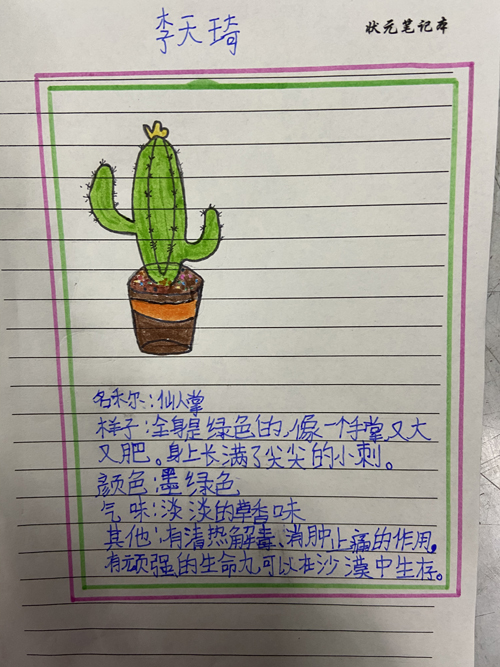 李天琦
状元笔记本
名称：仙人掌
样子：全身是绿色的，像一个手掌又大
又肥。身上长满了尖尖的小刺。
颜色：墨绿色
气味：淡淡的草香味
其他：有清热解毒、消肿止痛的作用。
有顽强的生命力可以在沙漠中生存。